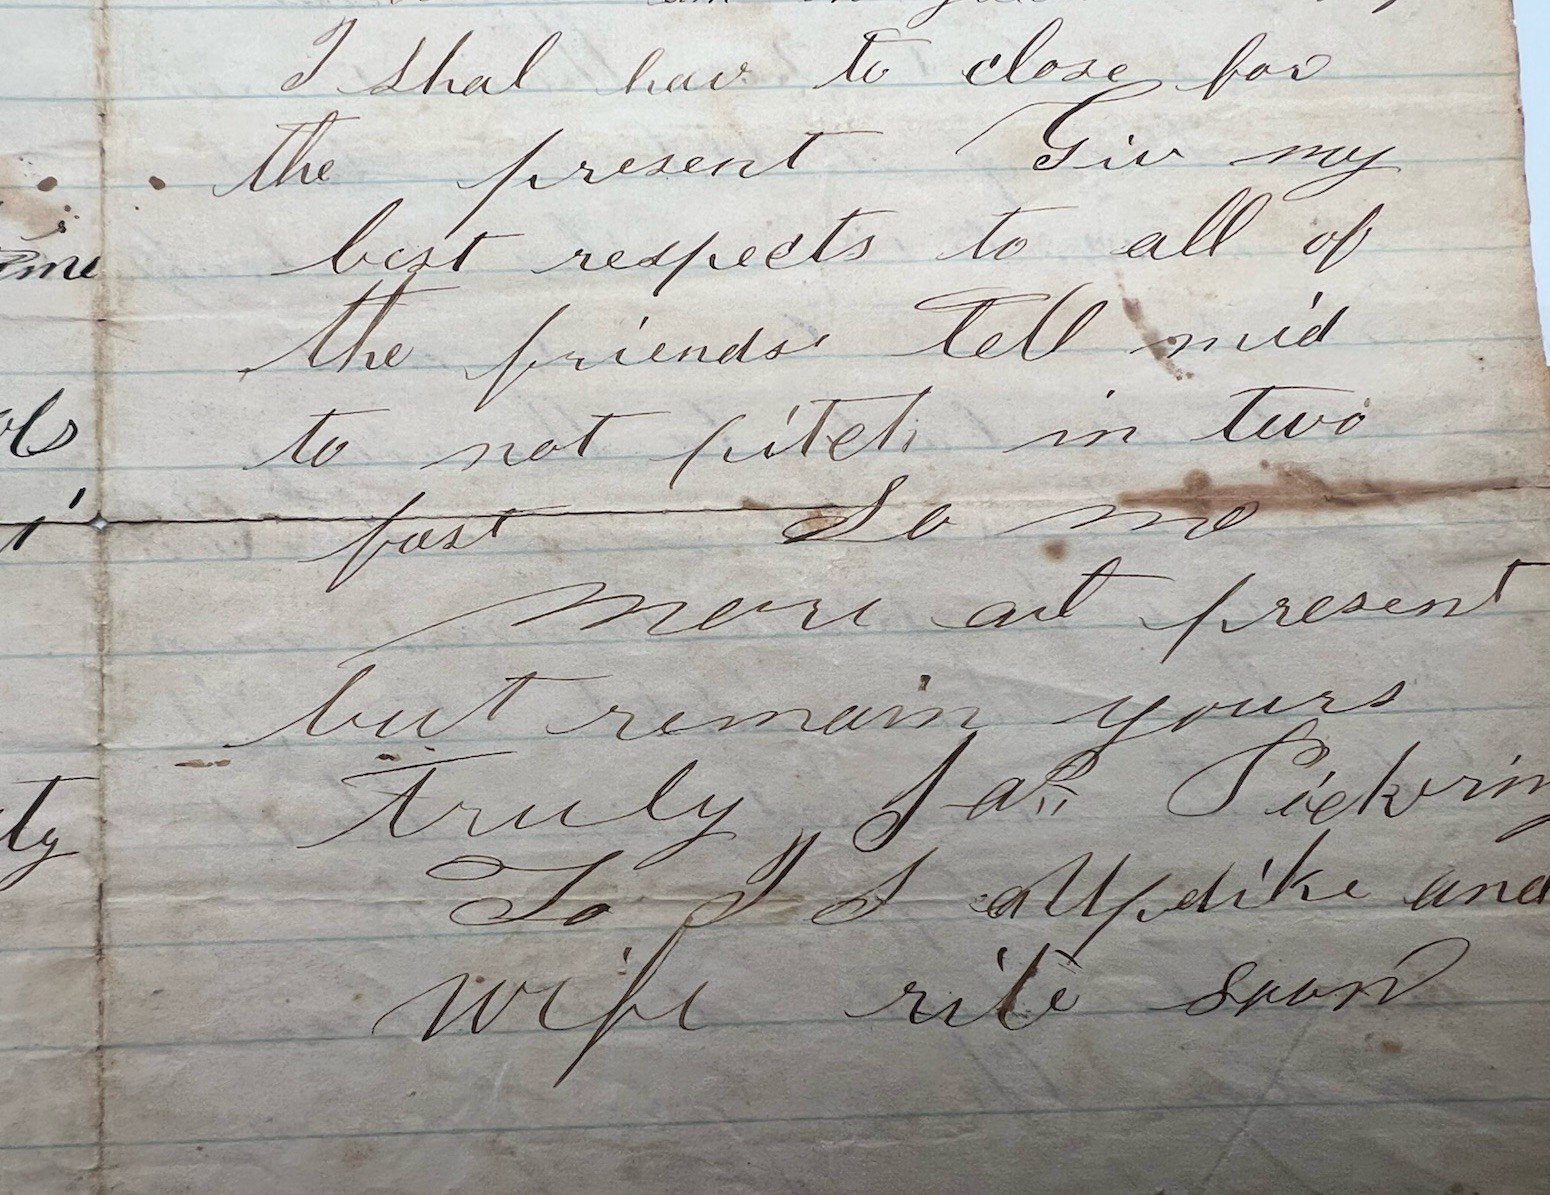 I shal hav to close for
the present Giv my
best respects to all of
the friends tell mid
to not pitch in two
fast So mo
more at present
but remain yours
truly Jas Pickrin
To J J Updike and
wife rite soon